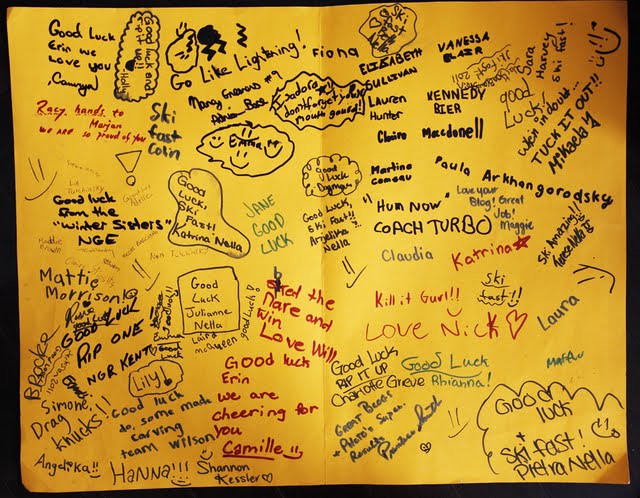 Good Luck
Erin we
Love you
Good
luck and
Go Like Lightning!
Fiona
Ski
fast
ELISABETH
SULLIVAN
VANESSA
BLAIR
Sara
Harvey
Ski fast!
Racy hands to
Marjan
we are so proud of you
Ski
fast
Colin
Isadora
don't forget your
mouth guard!
Lauren
Hunter
KENNEDY
BIER
Good
Luck!
When in doubt...
TUCK IT OUT!!
Mikaela
Claire Macdonell
Emma
Good luck
from the
"winter Sisters"
NGE
Good
Luck,
Ski
Fast!
Katrina Nella
JANE
GOOD
LUCK
Good
Luck
Good Luck,
Ski Fast!!
Anjelika
Nella
Martine
Comeau
Paula Arkhangorodsky
"HUM NOW"
COACH TURBO
Love your
Blog! Great
Job!
Maggie
Claudia
Katrina
Ski Amazing!!
Mattie
Morrison!
GOOD LUCK
RIP ONE!
NGR KENT
Good
Luck
Julianne
Nella
good luck!
Laina
McQueen
Shred the
nare and
win
Love Will
Ski
fast!!
Kill it Gurl!!
LOVE NICK
Laura
Brooke
Simone,
Drag
knucks!!
Lily!
Good luck
do, some made
carving
team Wilson
Good luck
Erin
we are
cheering for
you
Camille
Good Luck
RIP IT UP
Charlotte Greve
Good Luck
Rhianna!
Great Blog!
Results
Good
luck
+
Ski fast!
Pietra Nella
Angelika!!
HANNA!!!
Shannon
Kessler